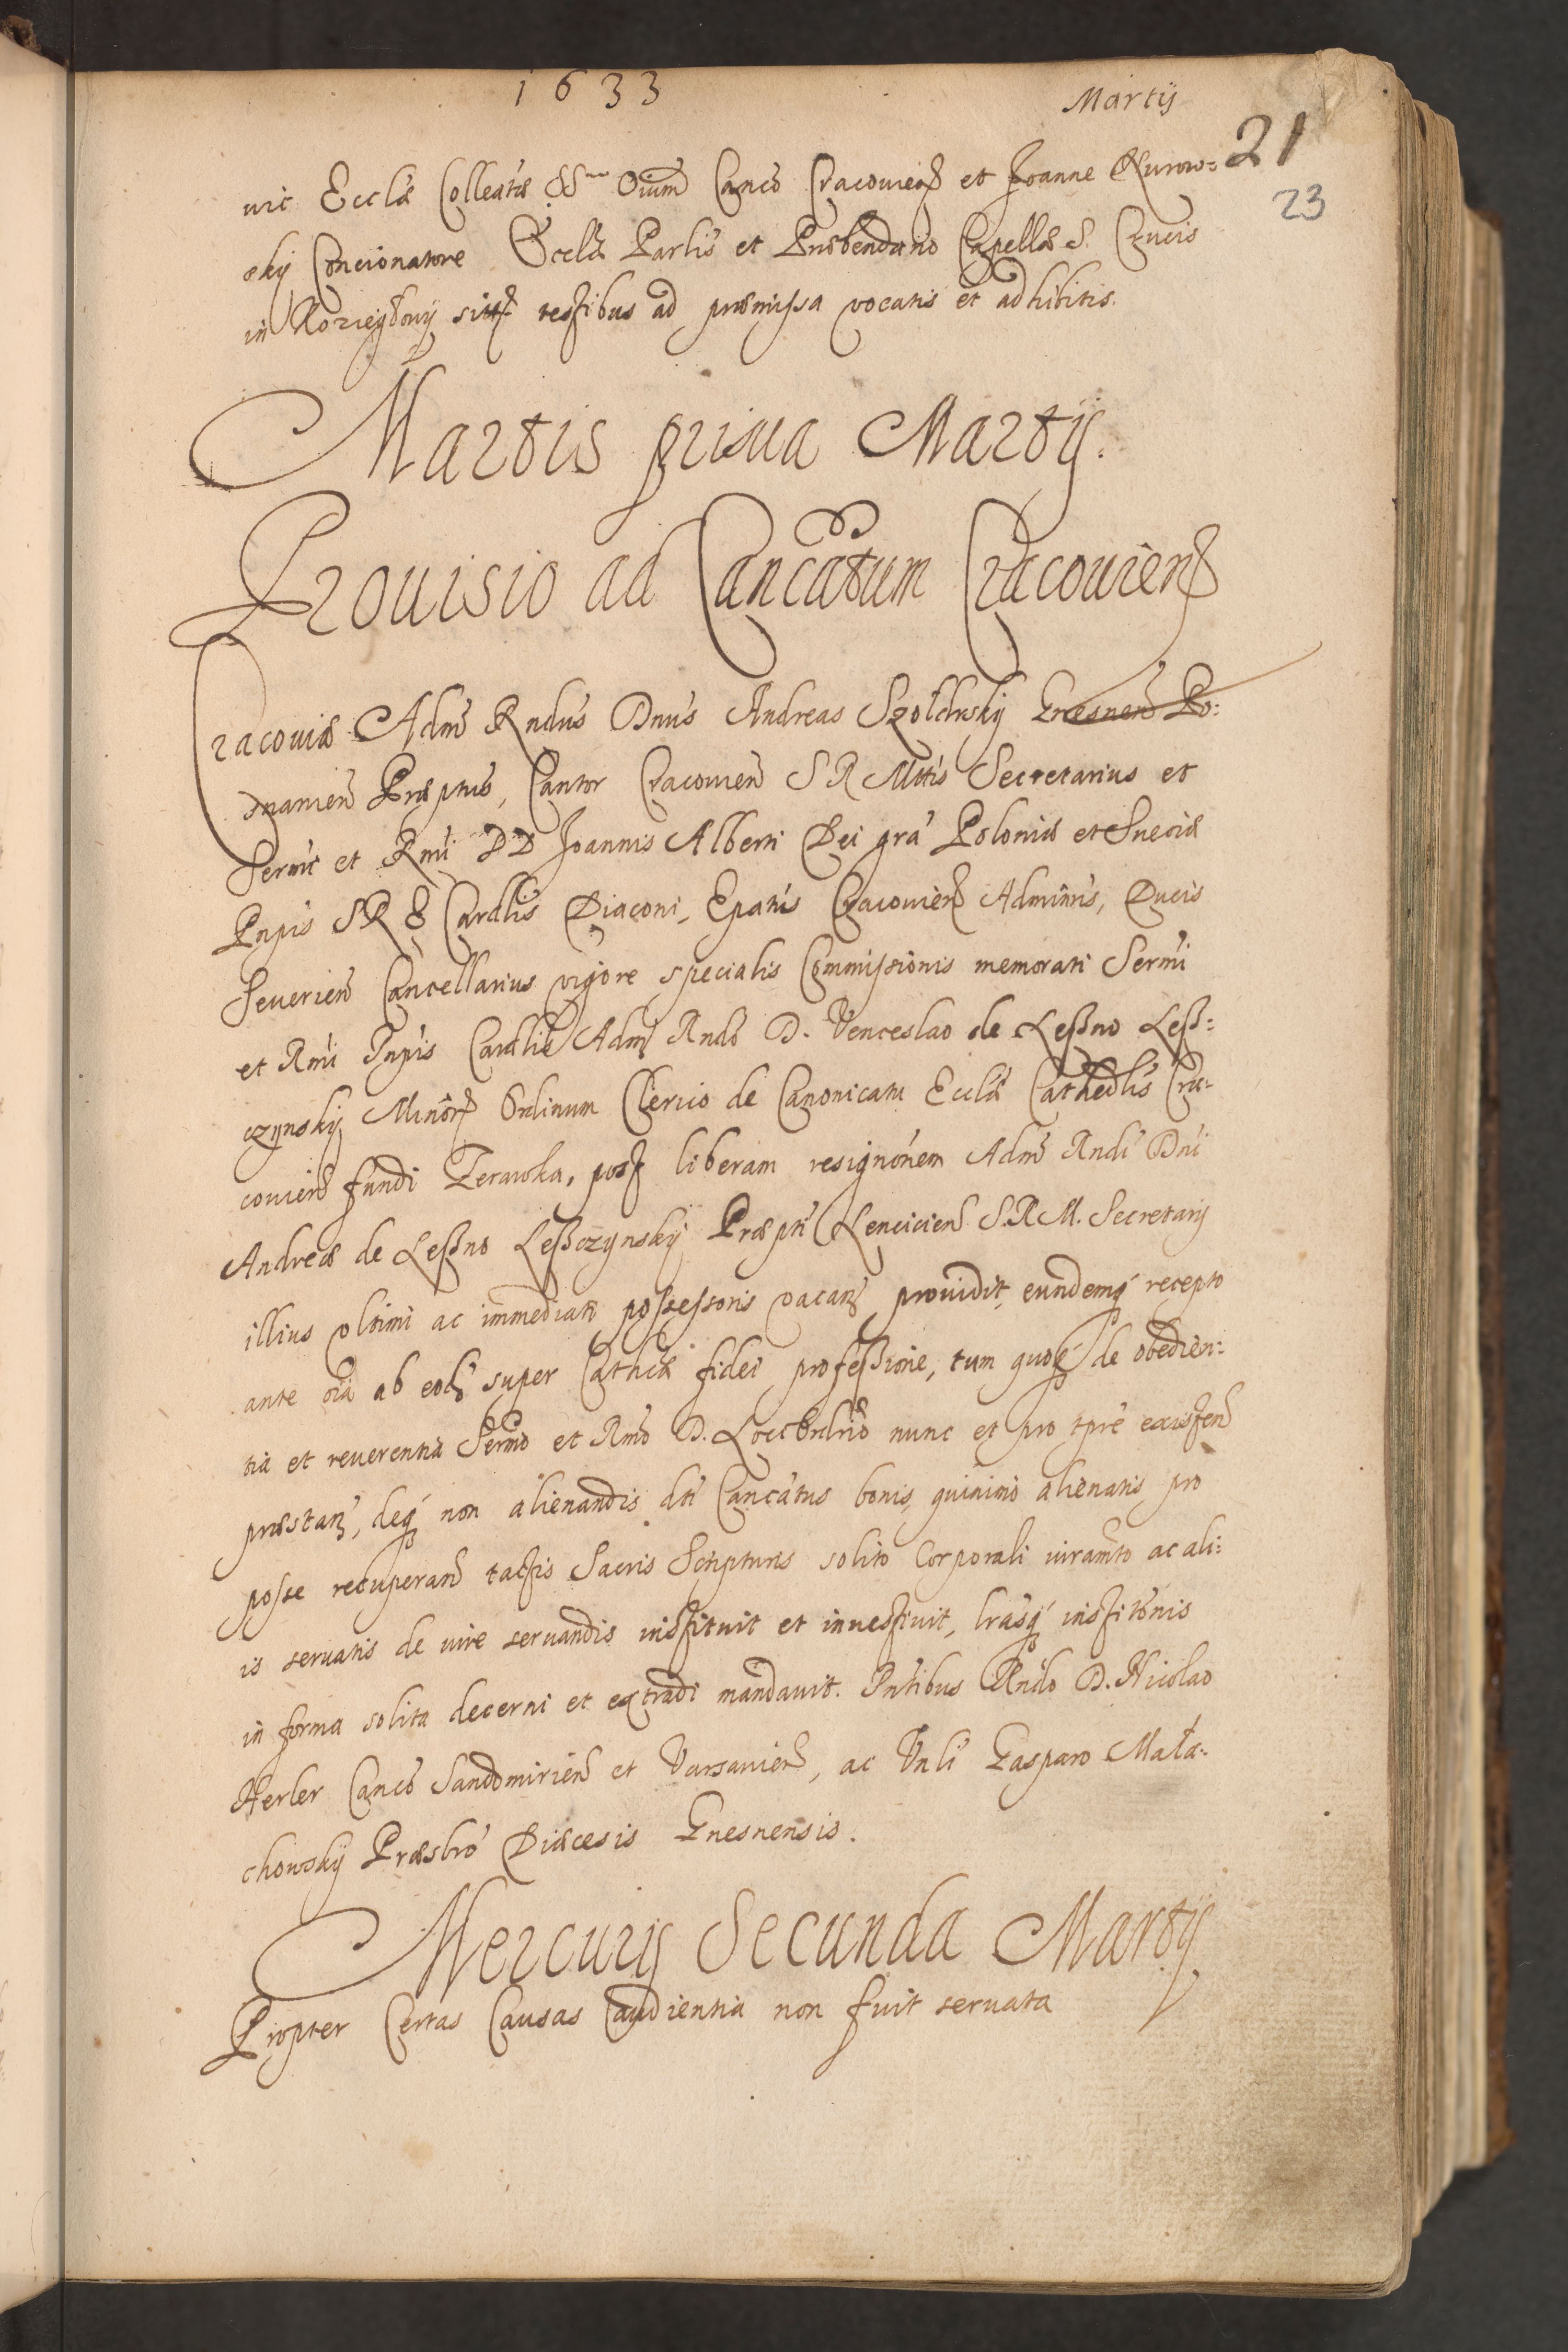 1633 Martij
21
23
uic Ecclæ Colleatæ SSrum Oium Canco Cracouien et Joanne Kurow=
sky Concionatore Ecclæ Parlis et Præbendario Capellæ S. Crucis
in Koziegłowy sitt testibus ad præmissa vocatis et adhibitis.
Martis prima Martij.
Prouisio ad Cancatum Cracouien
Cracouiæ Adm Rndus Dnus Andreas Szołdrsky Gnesnen Po:
znanien Præptus, Cantor Cracouien S R Mttis Secretarius et
Sermi et Rmi DD Joannis Alberti Dei gra Poloniæ et Sueciæ
Pnpis S R E Cardlis Diaconi, Epatus Cracouien Adminris, Ducis
Seuerien Cancellarius vigore specialis Commissionis memorati Sermi
et Rmi Pnpis Cardlis Adm Rndo D. Venceslao de Leßno Leß=
czynsky Minor Ordinum Clerico de Canonicatu Ecclæ Cathedlis Cra-
couien fundi Zerawka, post liberam resignonem Adm Rndi Dni
Andreæ de Leßno Leßczynsky Præpti Lencicien S. R. M. Secretarij
illius vltimi ac immediati possessoris vacan prouidit, eundemq recepto
ante oia ab eod super Catholicæ fidei profeßione, tum quoq de obedien:
tia et reuerentia Sermo et Rmo D. Loci Ordrio nunc et pro tpre existen
præstan, deq non alienandis dti Cancatus bonis, quinimo alienatis pro
posse recuperan tactis Sacris Scripturis solito Corporali iuramto ac ali:
is seruatis de iure seruandis instituit et inuestiuit, lrasq institonis
in forma solita decerni et extradi mandauit. Pntibus Rndo D. Nicolao
Herler Canco Sandomirien et Varsauien, ac Vnli Gasparo Mała-
chowsky Præsbro Diæcesis Gnesnensis.
Mercurij Secunda Martij
Propter Certas Causas Caudientia non fuit seruata